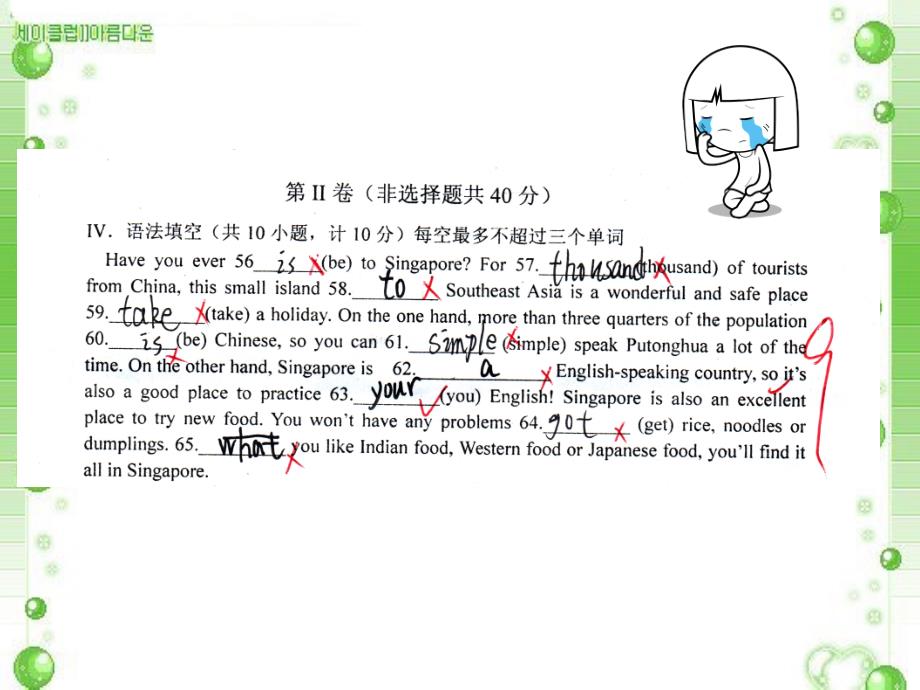 세이클럽]]아름다운
第 II 卷（非选择题共 40 分）
IV．语法填空（共 10 小题，计 10 分）每空最多不超过三个单词
Have you ever 56 is (be) to Singapore? For 57. thousand (thousand) of tourists
from China, this small island 58. to Southeast Asia is a wonderful and safe place
59. take (take) a holiday. On the one hand, more than three quarters of the population
60. is (be) Chinese, so you can 61. simple (simple) speak Putonghua a lot of the
time. On the other hand, Singapore is 62. a English-speaking country, so it's
also a good place to practice 63. your (you) English! Singapore is also an excellent
place to try new food. You won't have any problems 64. got (get) rice, noodles or
dumplings. 65. what you like Indian food, Western food or Japanese food, you'll find it
all in Singapore.
9